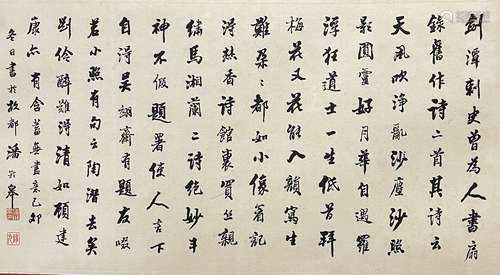 劍潭刺史曾為人書扇
錄舊作詩二首其詩云
天風吹淨亂沙塵沙照
影圓靈好月華自過羅
浮狂道士一生低首拜
梅花又花能入韻寫生
難朵朵都如小像看記
得熱香詩館裏買絲親
繡馬湘蘭二詩絕妙
神不假題署使人言下
自得吳翃齋有題友啜
茗小照有句云陶潛去矣
劉伶醉難得清如顧建
康亦有含蓄無盡意己卯
冬日書於故都潘齡皋